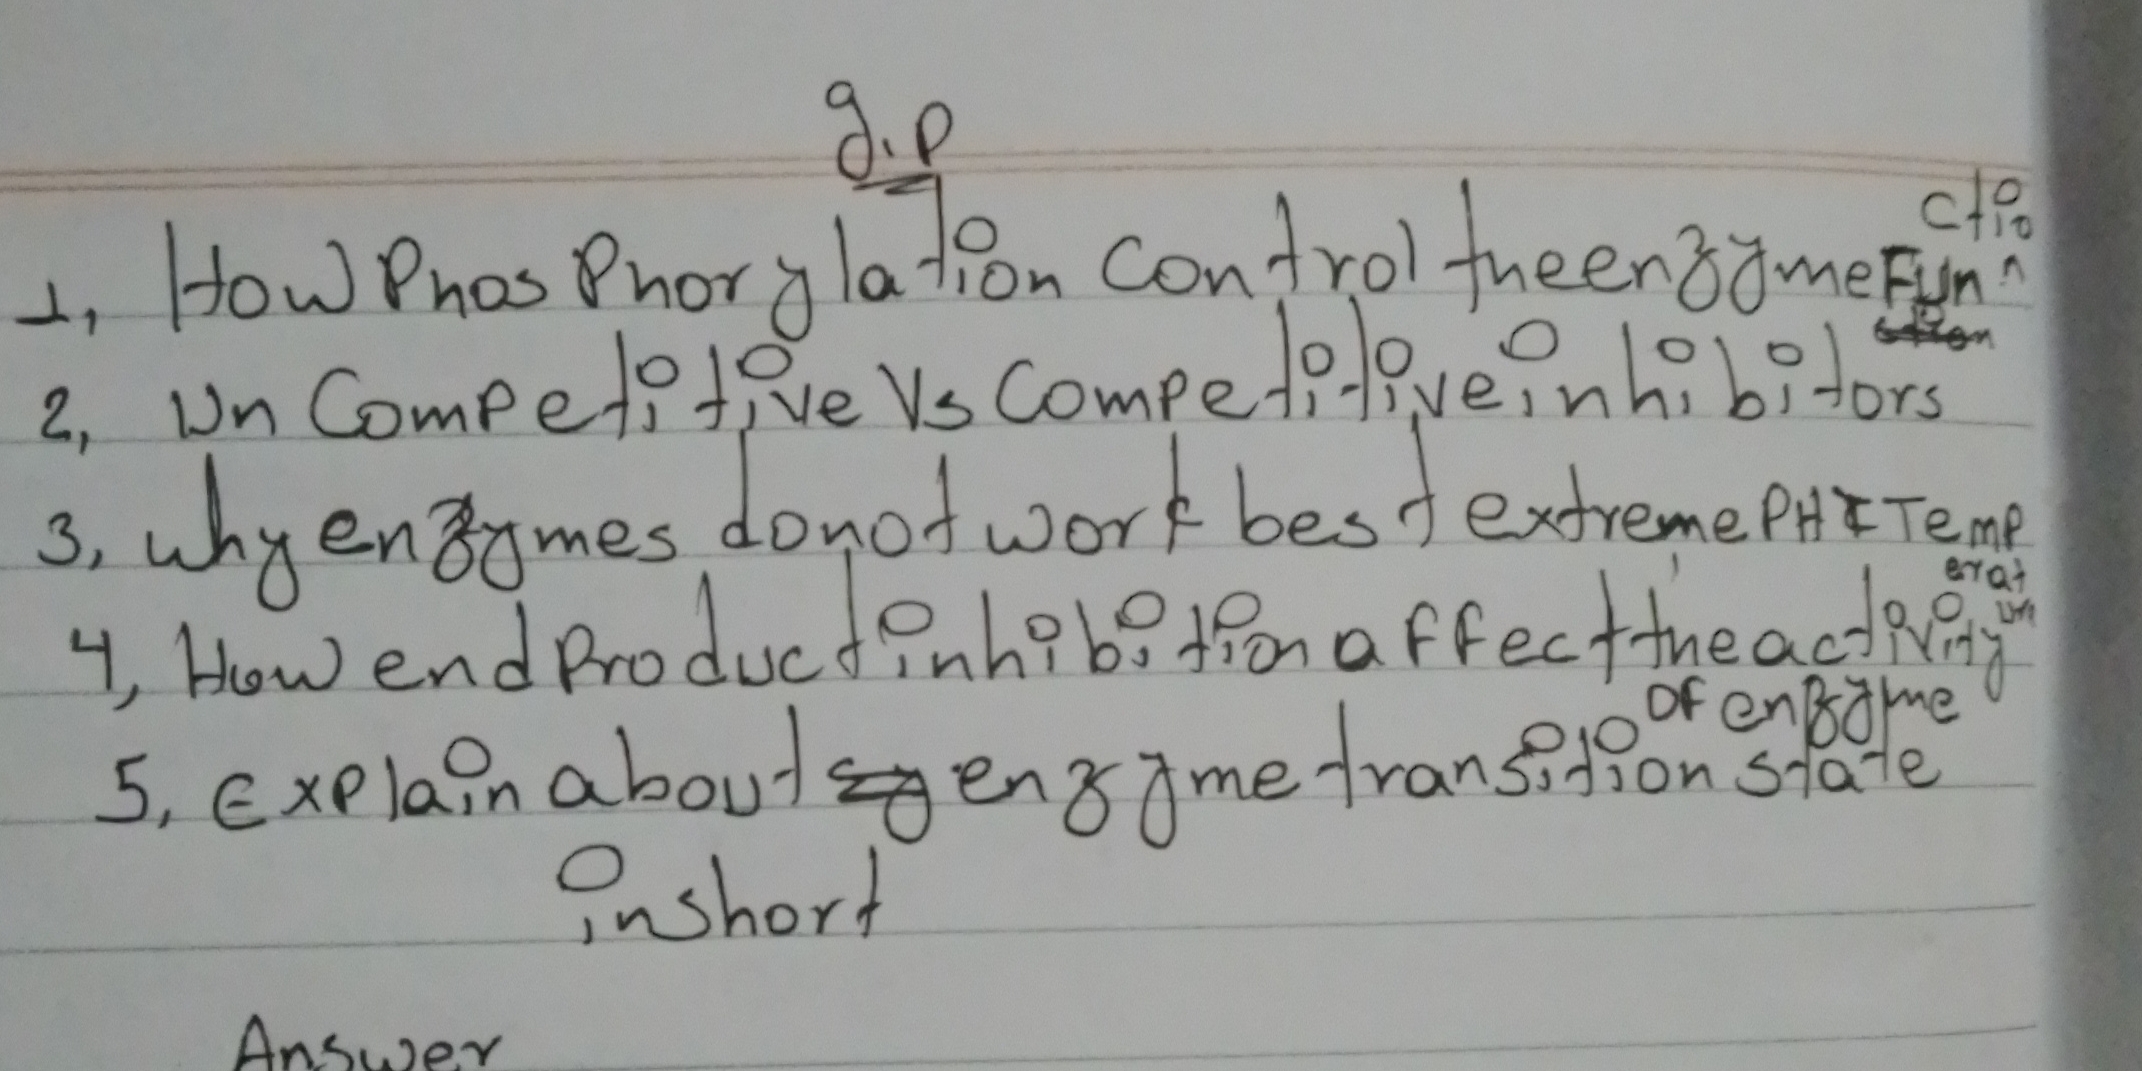 g.p
1, How Phosphorylation control the enzyme Function
2, Un Competitive Vs Competitive inhibitors
3, why enzymes do not work best extreme PH & Temperat
4, How end Product inhibition affect the activity
of enzyme
5, Explain about enzyme transition state
in short
Answer